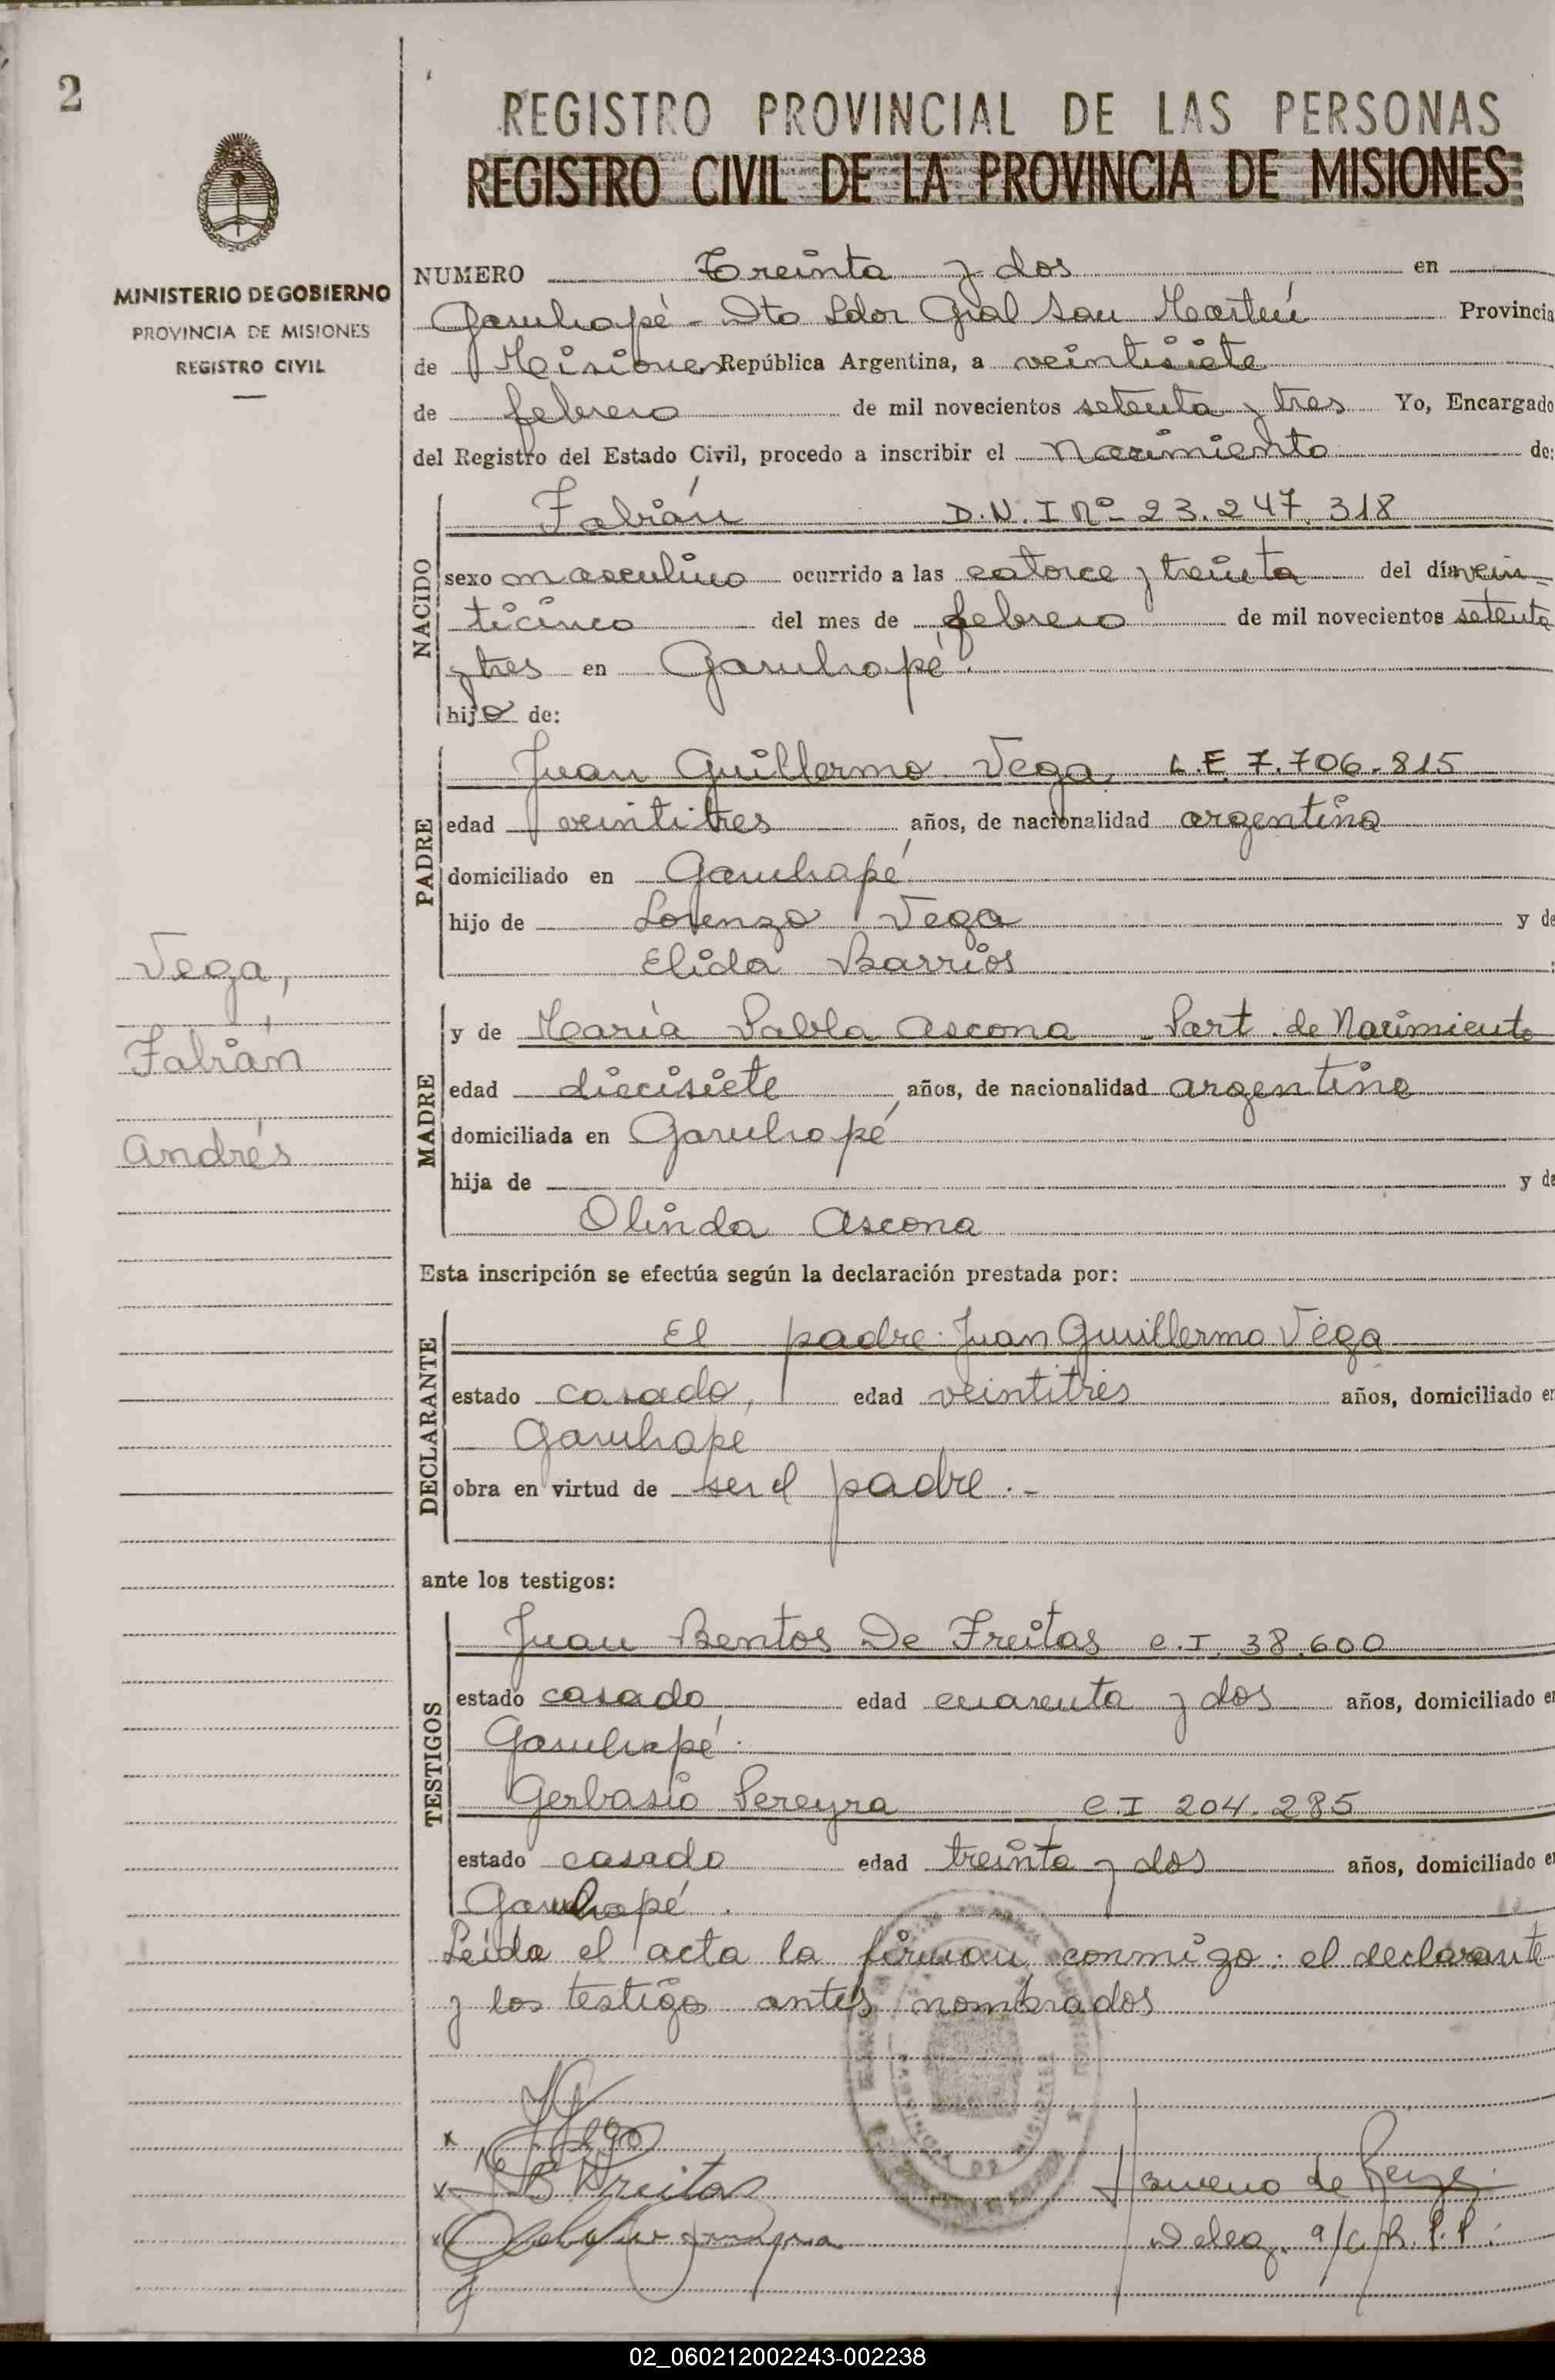 2
MINISTERIO DE GOBIERNO
PROVINCIA DE MISIONES
REGISTRO CIVIL
Vega,
Fabián
Andrés
REGISTRO PROVINCIAL DE LAS PERSONAS
REGISTRO CIVIL DE LA PROVINCIA DE MISIONES
NUMERO Treinta y dos en
Garuhapé - Dto Ldor Gral San Martín Provincia
de Misiones República Argentina, a veintisiete
de febrero de mil novecientos setenta y tres Yo, Encargado
del Registro del Estado Civil, procedo a inscribir el Nacimiento de:
NACIDO
Fabián D.N.I Nº 23.247.318
sexo masculino ocurrido a las catorce y treinta del día vein-
ticinco del mes de febrero de mil novecientos setenta
y tres en Garuhapé.
hijo de:
PADRE
Juan Guillermo Vega L.E. 7.706.815
edad veintitres años, de nacionalidad argentina
domiciliado en Garuhapé
hijo de Lorenzo Vega y de
Elida Barrios
MADRE
y de María Pabla Ascona - Part. de Nacimiento
edad diecisiete años, de nacionalidad argentina
domiciliada en Garuhapé
hija de y de
Olinda Ascona
Esta inscripción se efectúa según la declaración prestada por:
DECLARANTE
El padre: Juan Guillermo Vega
estado casado, edad veintitres años, domiciliado en
Garuhapé
obra en virtud de ser el padre.-
ante los testigos:
TESTIGOS
Juan Bentos De Freitas C.I. 38.600
estado casado edad cuarenta y dos años, domiciliado en
Garuhapé.
Gerbasio Pereyra C.I 204.285
estado casado edad treinta y dos años, domiciliado en
Garuhapé.
Leida el acta la firman conmigo: el declarante
y los testigos antes nombrados
x
x B Freitas
x
Deleg. a/c R.P.P.
02_060212002243-002238